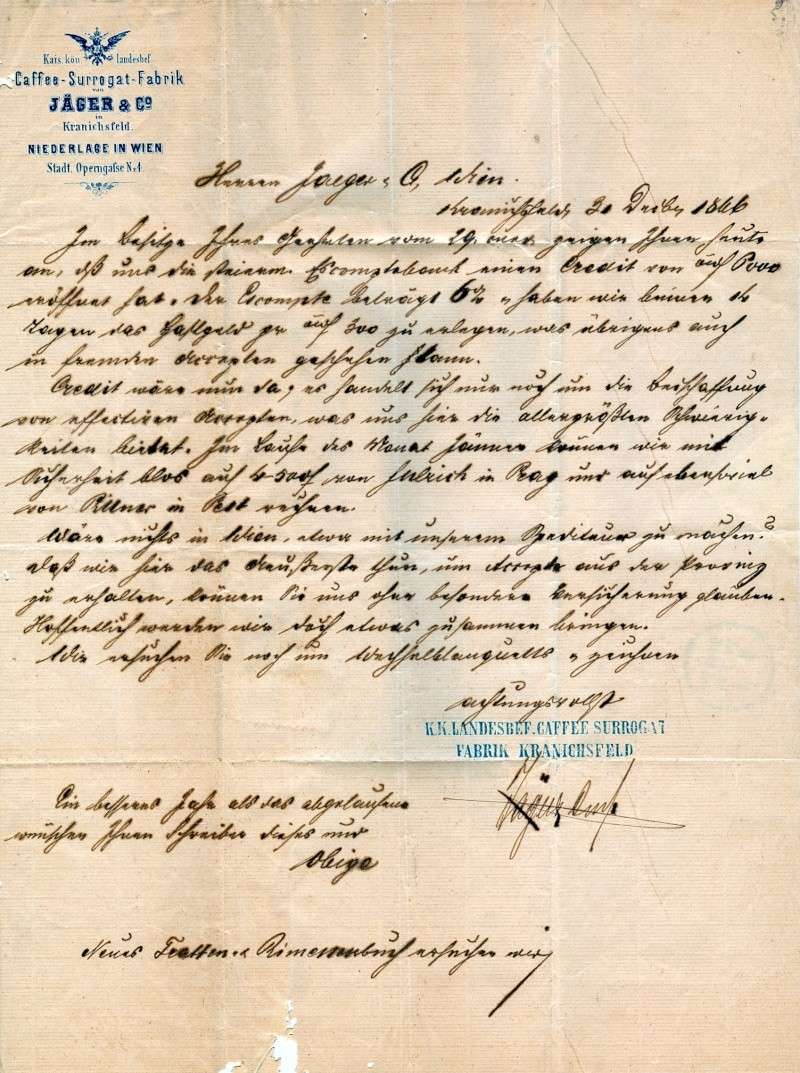 Kais. kön. landesbef.
Caffee-Surrogat-Fabrik
von
JÄGER & Cº
in
Kranichsfeld.
NIEDERLAGE IN WIEN
Stadt, Operngaſse Nº 1
Herren Jaeger & Co, Wien.
Kranichsfeld, 30 Decbr 1866
Im Besitze Ihres Geehrten vom 29. zeigen Ihnen heute
an, daß uns die steierm. Escomptebank einen Credit von
eröffnet hat. Der Escompte beträgt 6% & haben wir binnen 14
Tagen das Haftgeld pr 300 zu erlegen, was übrigens auch
in fremden Accepten geschehen kann.
Credit wäre nun da, es handelt sich nur noch um die Beischaffung
von effectiven Accepten, was uns hier die allergrößten Schwierig-
keiten bietet. Im Laufe des Monat Jänner können wir mit
Sicherheit blos auf 4-500 f von in Prag und auf ebensoviel
von in Pest rechnen.
Wäre nichts in Wien, etwa mit unserem Spediteur zu machen?
Daß wir hier das Aeußerste thun, um Accepte aus der Provinz
zu erhalten, können Sie uns ohne besondere Versicherung glauben.
Hoffentlich werden wir doch etwas zusammen bringen.
Wir ersuchen Sie noch um Wechselblanquetts & zeichnen
achtungsvollst
K.K. LANDESBEF. CAFFEE SURROGAT
FABRIK KRANICHSFELD
Ein besseres Jahr als das abgelaufene
wünschen Ihnen Schreiber dieses und
Obige
Neues Tratten- & Rimessenbuch ersuchen wir